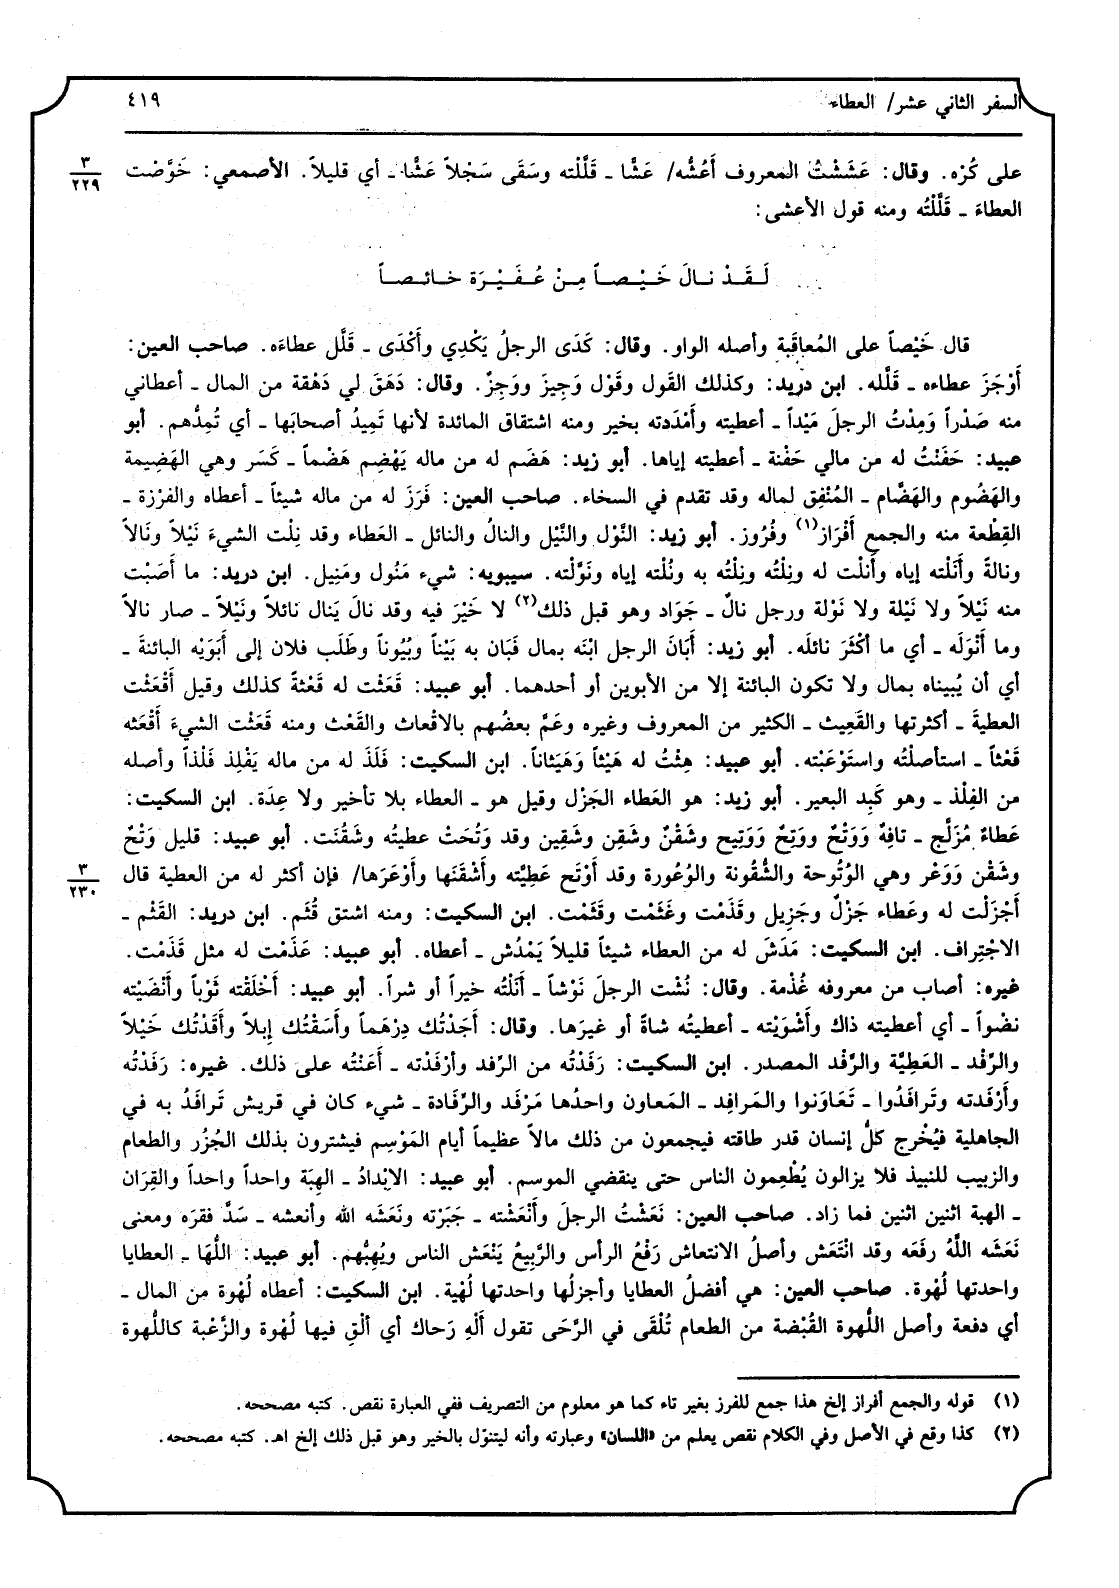 السفر الثاني عشر/ العطاء
٤١٩
على كُرْه. وقال: عَشَشْتُ المعروف أَعُشُّه/ عَشًّا ـ قَلَّلته وسَقَى سَجْلاً عَشًّا ـ أي قليلاً. الأصمعي: خَوَّصْت
٣
٢٢٩
العطاءَ ـ قَلَّلْتُه ومنه قول الأعشى:
لَـقَـدْ نـالَ خَـيْـصـاً مِـنْ عُـفَـيْـرَة خـائـصـاً
قال خَيْصاً على المُعاقَبة وأصله الواو. وقال: كَدَى الرجلُ يَكْدِي وأَكْدَى ـ قَلَّل عطاءَه. صاحب العين:
أَوْجَزَ عطاءه ـ قَلَّله. ابن دريد: وكذلك القول وقَوْل وَجِيزَ ووَجِزٌ. وقال: دَهَقَ لي دَهْقة من المال ـ أعطاني
منه صَدْراً وَمِدْتُ الرجلَ مَيْداً ـ أعطيته وأَمْدَدته بخير ومنه اشتقاق المائدة لأنها تَمِيدُ أصحابَها ـ أي تُمِدُّهم. أبو
عبيد: حَفَنْتُ له من مالي حَفْنة ـ أعطيته إياها. أبو زيد: هَضَم له من ماله يَهْضِم هَضْماً ـ كَسَر وهي الهَضِيمة
والهَضُوم والهَضَّام ـ المُنْفِق لماله وقد تقدم في السخاء. صاحب العين: فَرَزَ له من ماله شيئاً ـ أعطاه والفِرْزة ـ
القِطْعة منه والجمع أَفْرَاز(١) وفُرُوز. أبو زيد: النَّوْل والنَّيْل والنالُ والنائل ـ العَطاء وقد نِلْت الشيءَ نَيْلاً ونَالاً
ونالةً وأَنَلْته إياه وأَنلْت له ونِلْتُه ونِلْتُه به ونُلْته إياه ونَوَّلْته. سيبويه: شيء مَنُول ومَنِيل. ابن دريد: ما أَصَبْت
منه نَيْلاً ولا نَيْلة ولا نَوْلة ورجل نالٌ ـ جَوَاد وهو قبل ذلك(٢) لا خَيْرَ فيه وقد نالَ يَنال نائلاً ونَيْلاً ـ صار نالاً
وما أَنْوَلَه ـ أي ما أكْثَرَ نائلَه. أبو زيد: أَبَانَ الرجل ابْنَه بمال فَبَان به بَيْناً وبُيُوناً وطَلَب فلان إلى أَبَوَيْه البائنةَ ـ
أي أن يُبيناه بمال ولا تكون البائنة إلا من الأبوين أو أحدهما. أبو عبيد: قَعَثْت له قَعْثةً كذلك وقيل أَقْعَثْت
العطيةَ ـ أكثرتها والقَعِيث ـ الكثير من المعروف وغيره وعَمَّ بعضُهم بالاقْعاث والقَعْث ومنه قَعَثْت الشيءَ أَقْعَثه
قَعْثاً ـ استأصلْتُه واستَوْعَبْته. أبو عبيد: هِثْتُ له هَيْثاً وَهَيَثاناً. ابن السكيت: فَلَذَ له من ماله يَفْلِذ فَلْذاً وأصله
من الفِلْذ ـ وهو كَبِد البعير. أبو زيد: هو العَطاء الجَزْل وقيل هو ـ العطاء بلا تأخير ولا عِدَة. ابن السكيت:
عَطاءٌ مُزَلَّج ـ تافِهٌ وَوَتْحٌ ووَتِحٌ وَوَتِيح وشَقْنٌ وشَقِن وشَقِين وقد وَتُحَتْ عطيتُه وشَقُنَت. أبو عبيد: قليل وَتْحٌ
وشَقْن وَوَعْر وهي الوُتُوحة والشُّقونة والوُعُورة وقد أَوْتَح عَطِيَّته وأَشْقَنَها وأَوْعَرَها/ فإن أكثر له من العطية قال
٣
٢٣٠
أَجْزَلْت له وعَطاء جَزْلٌ وجَزِيل وقَذَمْت وغَثَمْت وقَثَمْت. ابن السكيت: ومنه اشتق قُثَم. ابن دريد: القَثْم ـ
الاجْتِراف. ابن السكيت: مَدَشَ له من العطاء شيئاً قليلاً يَمْدُش ـ أعطاه. أبو عبيد: عَذَمْت له مثل قَذَمْت.
غيره: أصاب من معروفه غُذْمة. وقال: نُشْت الرجلَ نَوْشاً ـ أَنَلْتُه خيراً أو شراً. أبو عبيد: أَخْلَقْته ثَوْباً وأَنْضَيْته
نضْواً ـ أي أعطيته ذاك وأَشْوَيْته ـ أعطيتُه شاةً أو غيرَها. وقال: أَجَدْتُك دِرْهَماً وأَسَقْتُك إبلاً وأَقَدْتُك خَيْلاً
والرِّفْد ـ العَطِيَّة والرِّفْد المصدر. ابن السكيت: رَفَدْتُه من الرِّفد وأرْفَدْته ـ أَعَنْتُه على ذلك. غيره: رَفَدْتُه
وأَرْفَدته وتَرافَدُوا ـ تَعَاوَنوا والمَرافِد ـ المَعاون واحدُها مَرْفَد والرِّفَادة ـ شيء كان في قريش تَرافَدُ به في
الجاهلية فيُخْرج كلُّ إنسان قدر طاقته فيجمعون من ذلك مالاً عظيماً أيام المَوْسِم فيشترون بذلك الجُزُر والطعام
والزبيب للنبيذ فلا يزالون يُطْعِمون الناس حتى ينقضي الموسم. أبو عبيد: الابْدادُ ـ الهِبَة واحداً واحداً والقِرَان
ـ الهبة اثنين اثنين فما زاد. صاحب العين: نَعَشْتُ الرجلَ وأَنْعَشْته ـ جَبَرْته ونَعَشَه الله وأنعشه ـ سَدَّ فقرَه ومعنى
نَعَشَه اللَّهُ رفَعَه وقد انْتَعَش وأصلُ الانتعاش رَفْعُ الرأس والرَّبِيعُ يَنْعَش الناس ويُهِبُّهم. أبو عبيد: اللُّهَا ـ العطايا
واحدتها لُهْوة. صاحب العين: هي أفضلُ العطايا وأجزلُها واحدتها لُهْية. ابن السكيت: أعطاه لُهْوة من المال ـ
أي دفعة وأصل اللُّهوة القُبْضة من الطعام تُلْقَى في الرَّحَى تقول أَلْهِ رَحاك أي ألْقِ فيها لُهْوة والزَّعْبة كاللُّهوة
(١) قوله والجمع أفراز إلخ هذا جمع للفرز بغير تاء كما هو معلوم من التصريف ففي العبارة نقص. كتبه مصححه.
(٢) كذا وقع في الأصل وفي الكلام نقص يعلم من «اللسان» وعبارته وأنه ليتنوّل بالخير وهو قبل ذلك إلخ اهـ. كتبه مصححه.